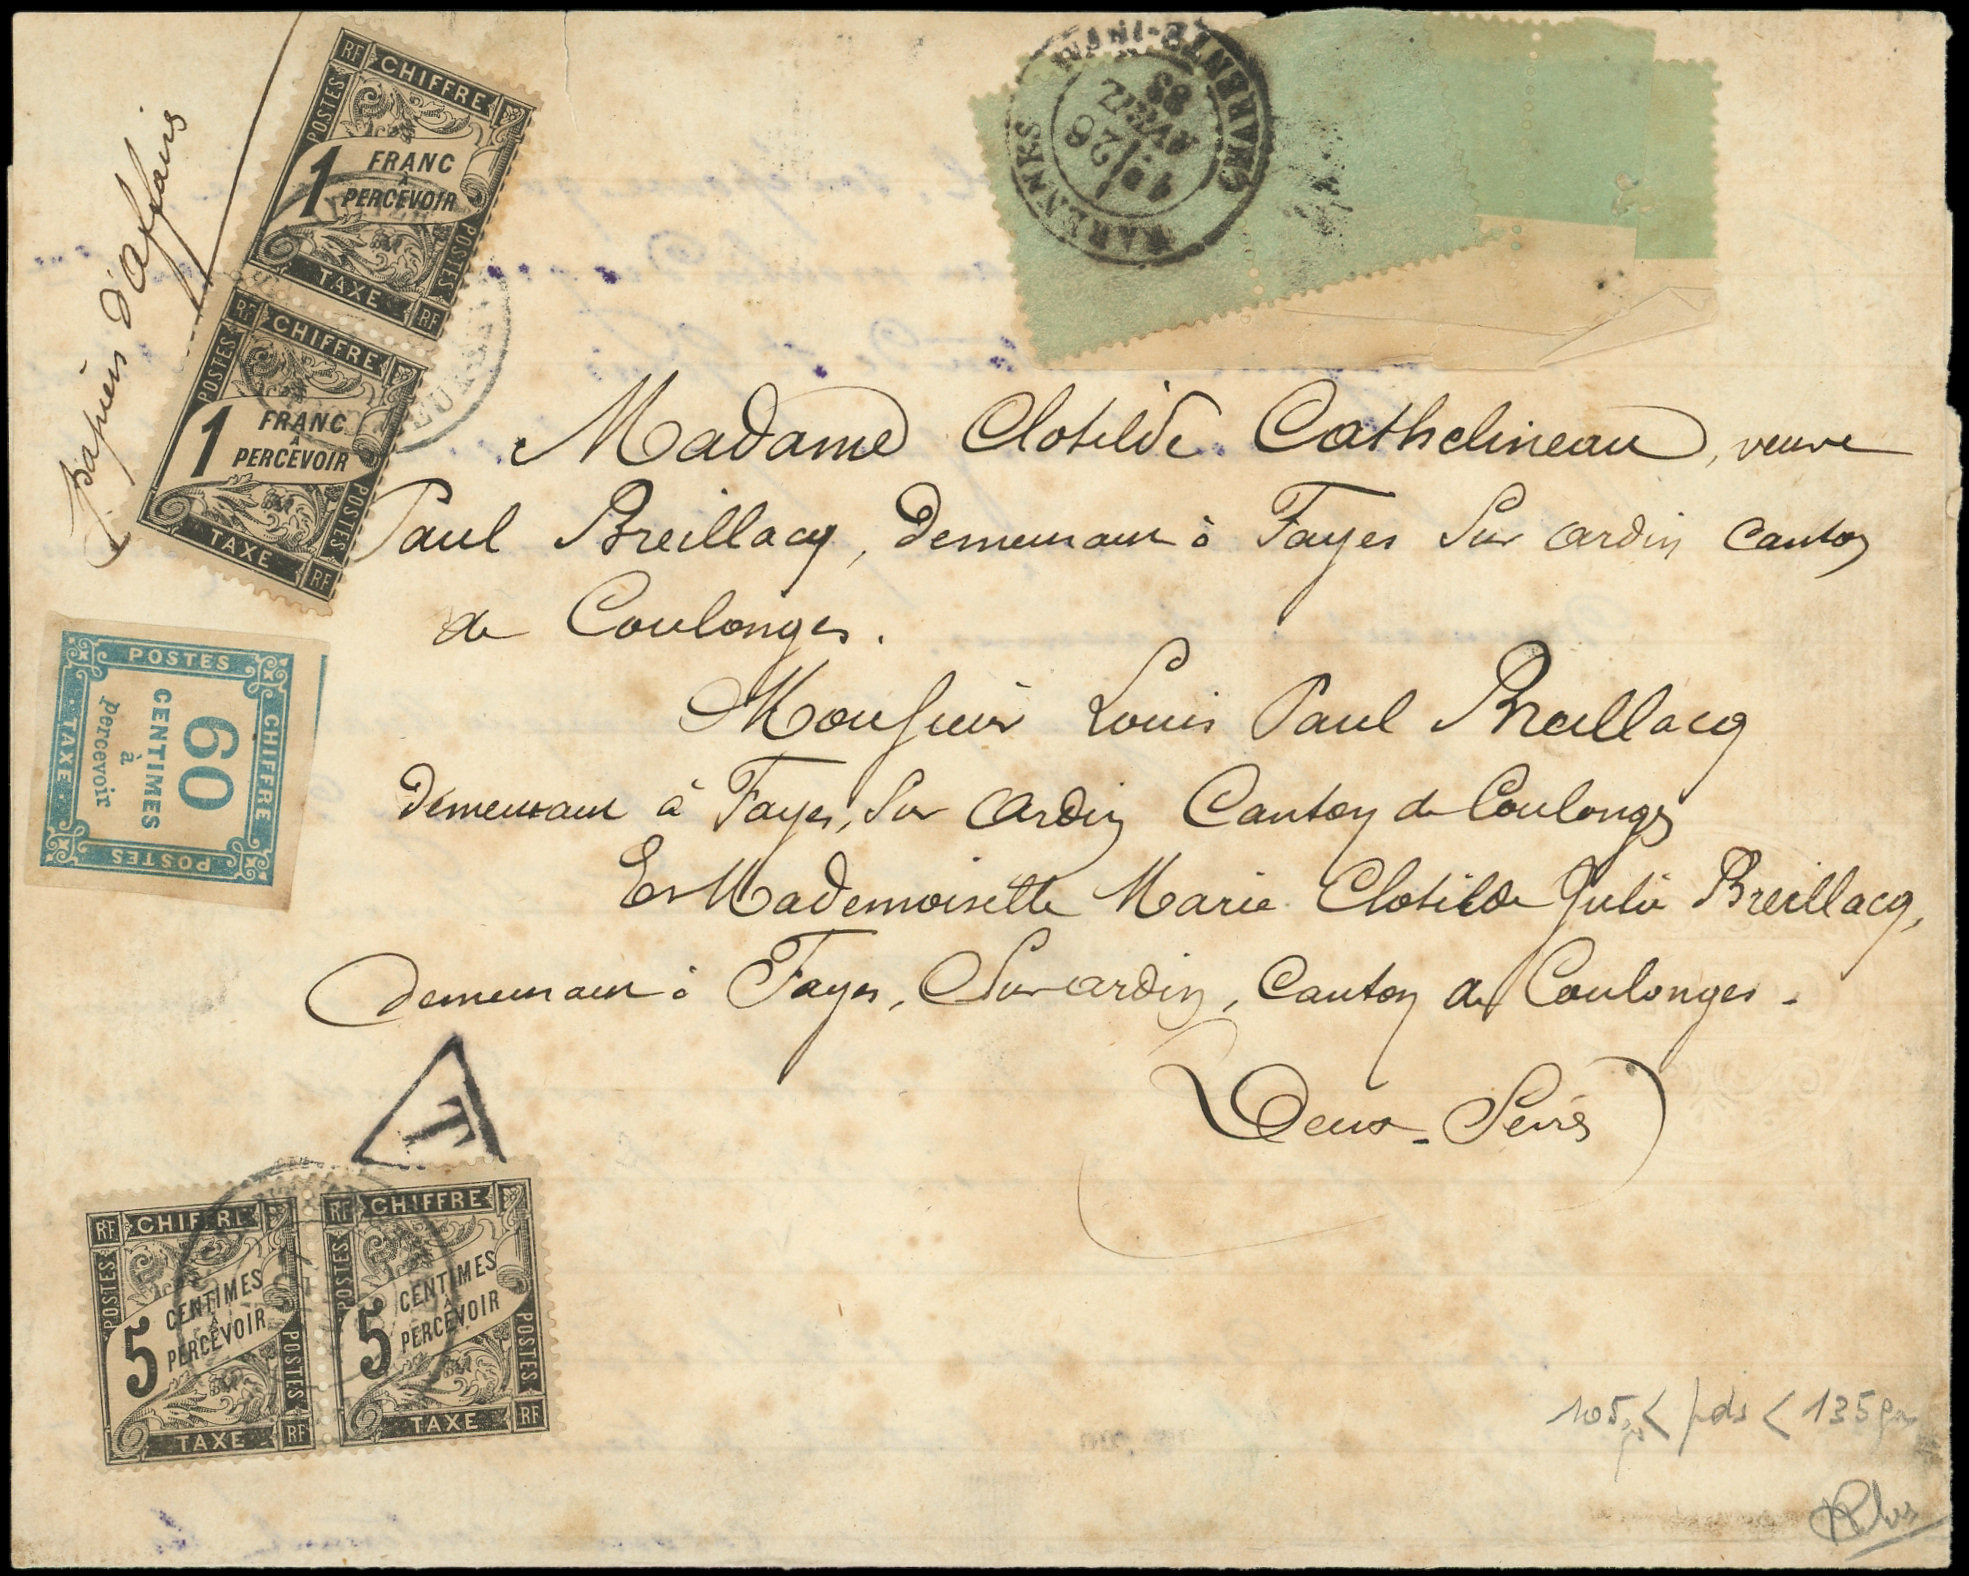 papiers d'Affaires
RF CHIFFRE
POSTES
1 FRANC
À
PERCEVOIR
POSTES
TAXE RF
RF CHIFFRE
POSTES
1 FRANC
À
PERCEVOIR
POSTES
TAXE RF
MARENNES
CHARENTE-INFRE
1E
26
AVRIL
88
Madame Clotilde Cathelineau, veuve
Paul Breillacq, demeurant à Fayes Sur Ardin Canton
de Coulonges.
Monsieur Louis Paul Breillacq
demeurant à Fayes, Sur Ardin Canton de Coulonges
Et Mademoiselle Marie Clotilde Julie Breillacq,
demeurant à Fayes, Sur ardin, Canton de Coulonges.
Deux-Sèvres
POSTES
CHIFFRE
60
CENTIMES
à
percevoir
TAXE
POSTES
T
RF CHIFFRE
POSTES
5 CENTIMES
À
PERCEVOIR
POSTES
TAXE RF
RF CHIFFRE
POSTES
5 CENTIMES
À
PERCEVOIR
POSTES
TAXE RF
105g < pds < 135gr